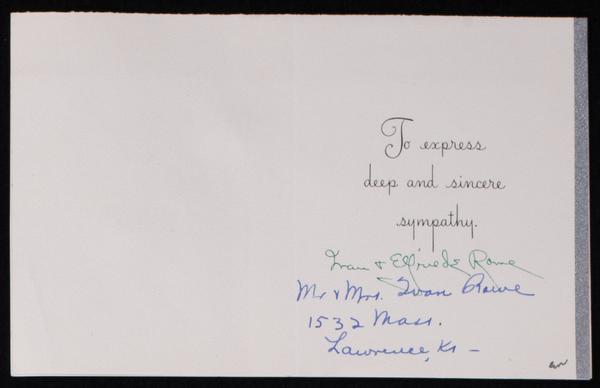 To express
deep and sincere
sympathy.
Ivan & Elfriede Rowe
Mr & Mrs. Ivan Rowe
1532 Mass.
Lawrence, Ks –